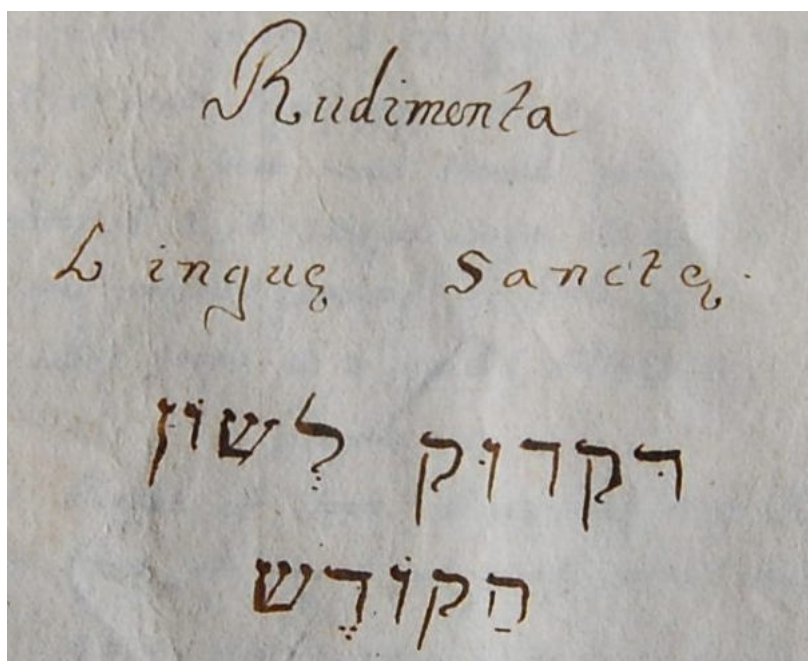 Rudimenta
Linguę Sanctę.
דִקְדוּק לְשׁוֹן
הַקוֹדֶשׁ